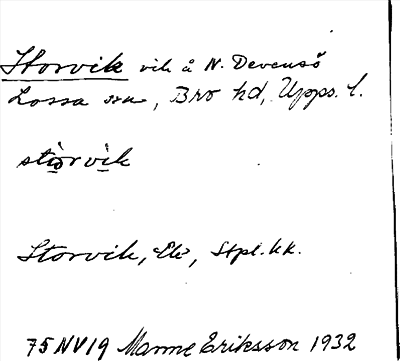 Storvik vik å N. Devensö
Lossa sn, Bro hd, Upps. l.
stòrvik
Storvik, Ek, Stpl.kk.
75NV19 Manne Eriksson 1932